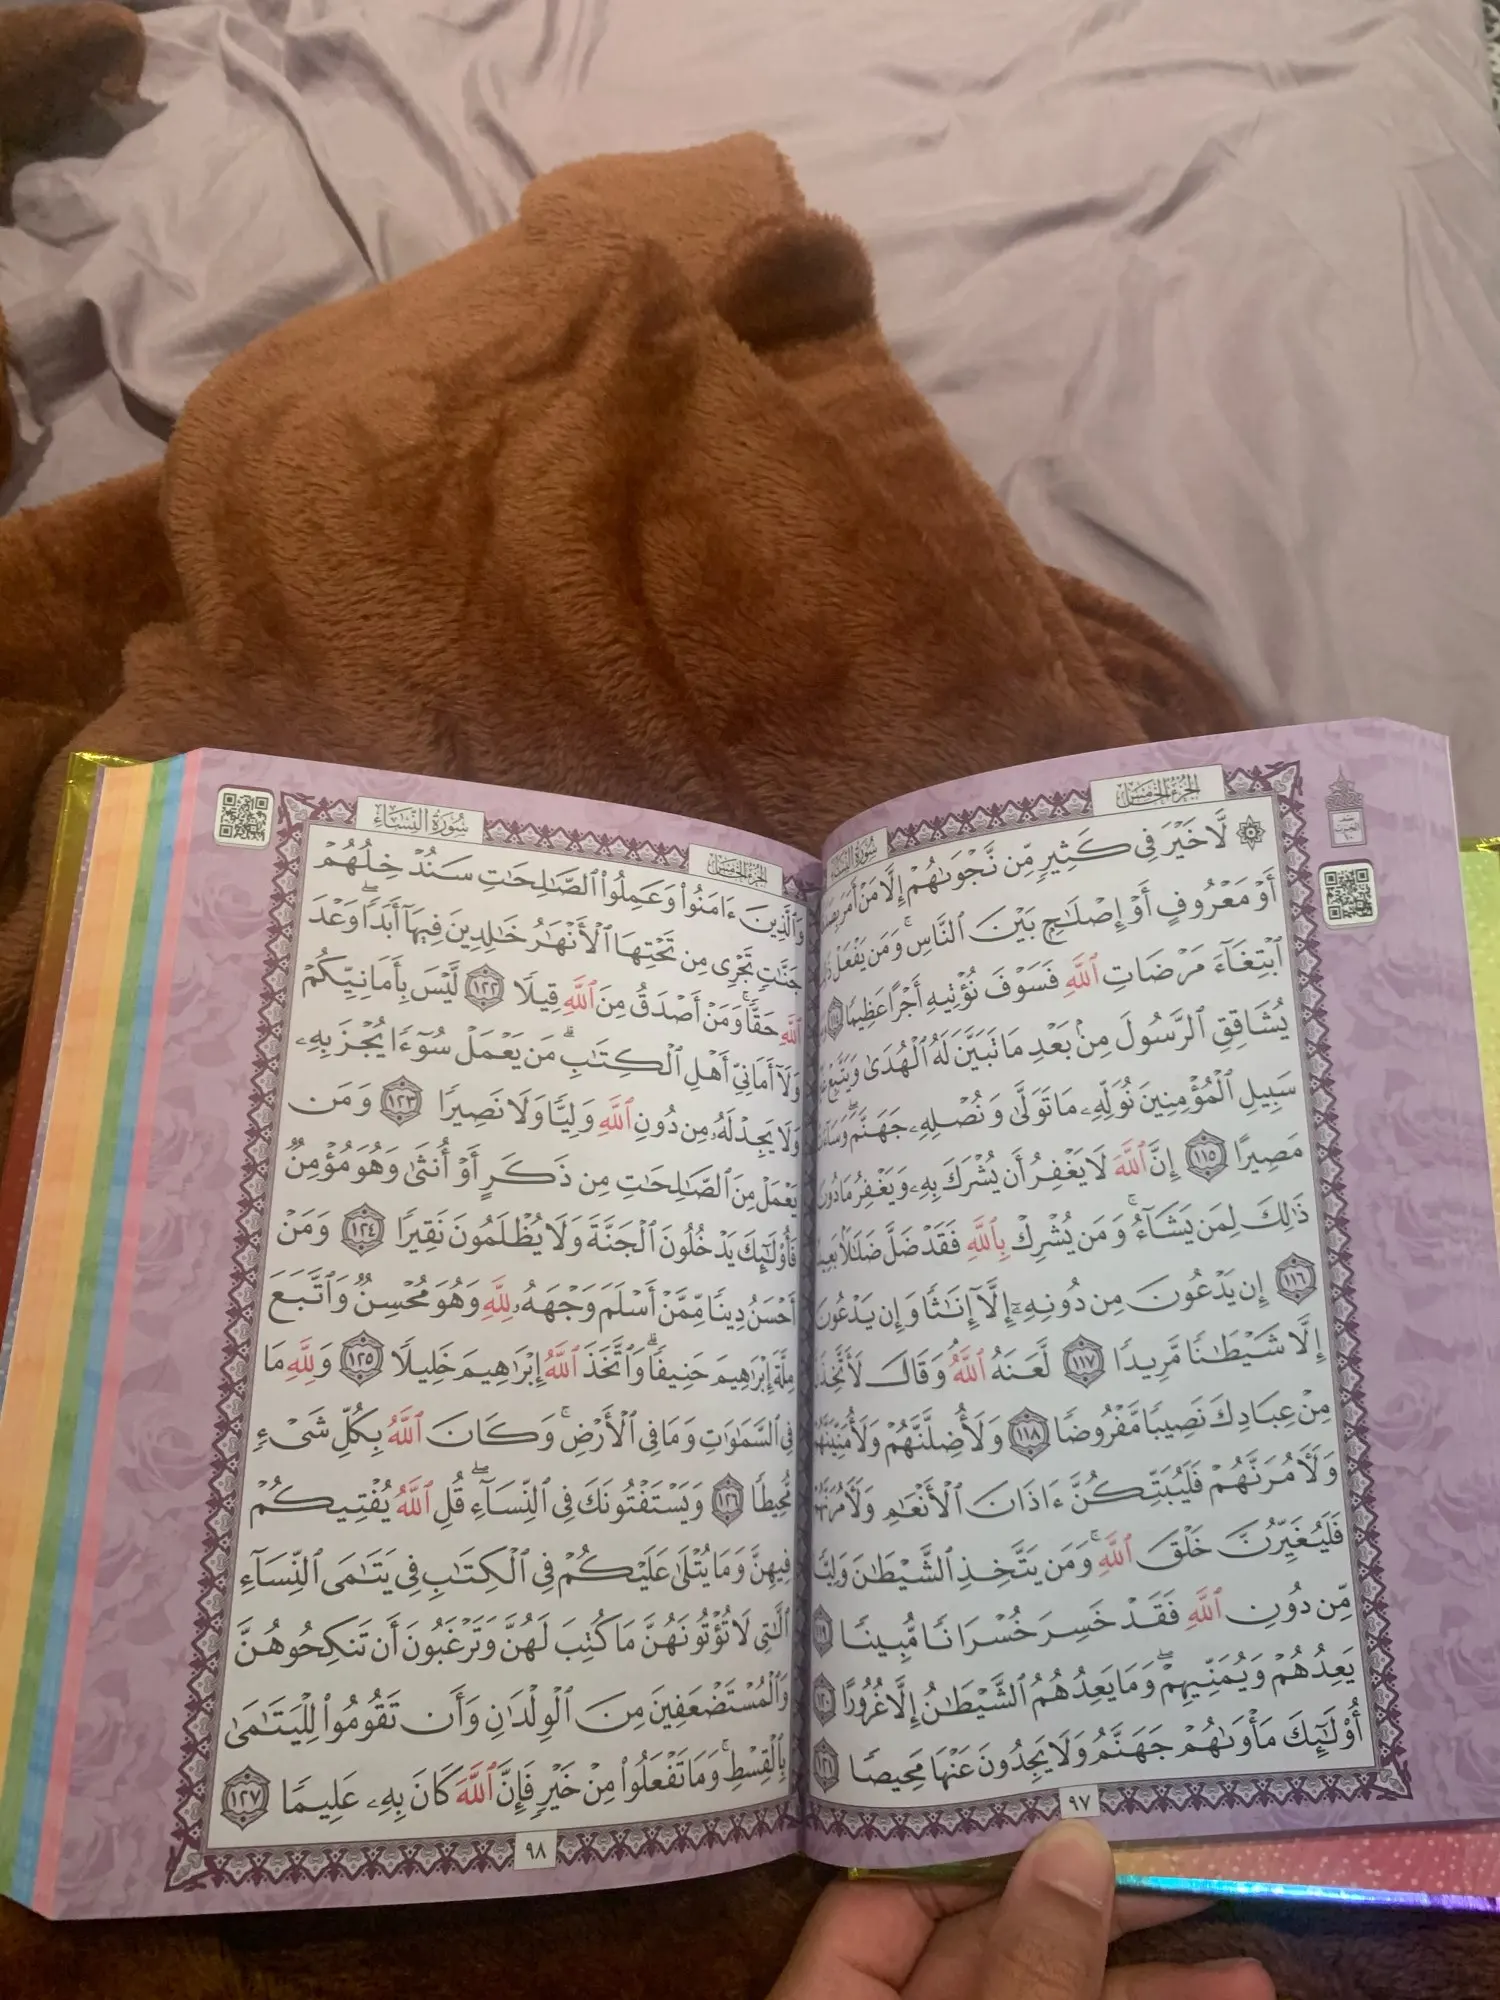 الجزء الخامس
سورة النساء
۞ لَّا خَيْرَ فِى كَثِيرٍ مِّن نَّجْوَىٰهُمْ إِلَّا مَنْ أَمَرَ
أَوْ مَعْرُوفٍ أَوْ إِصْلَـٰحٍۭ بَيْنَ ٱلنَّاسِ ۚ وَمَن يَفْعَلْ
ٱبْتِغَآءَ مَرْضَاتِ ٱللَّهِ فَسَوْفَ نُؤْتِيهِ أَجْرًا عَظِيمًا
يُشَاقِقِ ٱلرَّسُولَ مِنۢ بَعْدِ مَا تَبَيَّنَ لَهُ ٱلْهُدَىٰ وَيَتَّبِعْ
سَبِيلِ ٱلْمُؤْمِنِينَ نُوَلِّهِۦ مَا تَوَلَّىٰ وَنُصْلِهِۦ جَهَنَّمَ ۖ
مَصِيرًا ١١٥ إِنَّ ٱللَّهَ لَا يَغْفِرُ أَن يُشْرَكَ بِهِۦ وَيَغْفِرُ مَا دُونَ
ذَٰلِكَ لِمَن يَشَآءُ ۚ وَمَن يُشْرِكْ بِٱللَّهِ فَقَدْ ضَلَّ ضَلَـٰلًۢا بَعِيدًا
١١٦ إِن يَدْعُونَ مِن دُونِهِۦٓ إِلَّآ إِنَـٰثًا وَإِن يَدْعُونَ
إِلَّا شَيْطَـٰنًا مَّرِيدًا ١١٧ لَّعَنَهُ ٱللَّهُ ۘ وَقَالَ لَأَتَّخِذَنَّ
مِنْ عِبَادِكَ نَصِيبًا مَّفْرُوضًا ١١٨ وَلَأُضِلَّنَّهُمْ وَلَأُمَنِّيَنَّهُمْ
وَلَـَٔامُرَنَّهُمْ فَلَيُبَتِّكُنَّ ءَاذَانَ ٱلْأَنْعَـٰمِ وَلَـَٔامُرَنَّهُمْ
فَلَيُغَيِّرُنَّ خَلْقَ ٱللَّهِ ۚ وَمَن يَتَّخِذِ ٱلشَّيْطَـٰنَ وَلِيًّا
مِّن دُونِ ٱللَّهِ فَقَدْ خَسِرَ خُسْرَانًا مُّبِينًا ١١٩
يَعِدُهُمْ وَيُمَنِّيهِمْ ۖ وَمَا يَعِدُهُمُ ٱلشَّيْطَـٰنُ إِلَّا غُرُورًا ١٢٠
أُو۟لَـٰٓئِكَ مَأْوَىٰهُمْ جَهَنَّمُ وَلَا يَجِدُونَ عَنْهَا مَحِيصًا ١٢١
٩٧
الجزء الخامس
سورة النساء
وَٱلَّذِينَ ءَامَنُوا۟ وَعَمِلُوا۟ ٱلصَّـٰلِحَـٰتِ سَنُدْخِلُهُمْ
جَنَّـٰتٍ تَجْرِى مِن تَحْتِهَا ٱلْأَنْهَـٰرُ خَـٰلِدِينَ فِيهَآ أَبَدًا ۖ وَعْدَ
ٱللَّهِ حَقًّا ۚ وَمَنْ أَصْدَقُ مِنَ ٱللَّهِ قِيلًا ١٢٢ لَّيْسَ بِأَمَانِيِّكُمْ
وَلَآ أَمَانِىِّ أَهْلِ ٱلْكِتَـٰبِ ۗ مَن يَعْمَلْ سُوٓءًا يُجْزَ بِهِۦ
وَلَا يَجِدْ لَهُۥ مِن دُونِ ٱللَّهِ وَلِيًّا وَلَا نَصِيرًا ١٢٣ وَمَن
يَعْمَلْ مِنَ ٱلصَّـٰلِحَـٰتِ مِن ذَكَرٍ أَوْ أُنثَىٰ وَهُوَ مُؤْمِنٌ
فَأُو۟لَـٰٓئِكَ يَدْخُلُونَ ٱلْجَنَّةَ وَلَا يُظْلَمُونَ نَقِيرًا ١٢٤ وَمَنْ
أَحْسَنُ دِينًا مِّمَّنْ أَسْلَمَ وَجْهَهُۥ لِلَّهِ وَهُوَ مُحْسِنٌ وَٱتَّبَعَ
مِلَّةَ إِبْرَٰهِيمَ حَنِيفًا ۗ وَٱتَّخَذَ ٱللَّهُ إِبْرَٰهِيمَ خَلِيلًا ١٢٥ وَلِلَّهِ مَا
فِى ٱلسَّمَـٰوَٰتِ وَمَا فِى ٱلْأَرْضِ ۚ وَكَانَ ٱللَّهُ بِكُلِّ شَىْءٍ
مُّحِيطًا ١٢٦ وَيَسْتَفْتُونَكَ فِى ٱلنِّسَآءِ ۖ قُلِ ٱللَّهُ يُفْتِيكُمْ
فِيهِنَّ وَمَا يُتْلَىٰ عَلَيْكُمْ فِى ٱلْكِتَـٰبِ فِى يَتَـٰمَى ٱلنِّسَآءِ
ٱلَّـٰتِى لَا تُؤْتُونَهُنَّ مَا كُتِبَ لَهُنَّ وَتَرْغَبُونَ أَن تَنكِحُوهُنَّ
وَٱلْمُسْتَضْعَفِينَ مِنَ ٱلْوِلْدَٰنِ وَأَن تَقُومُوا۟ لِلْيَتَـٰمَىٰ
بِٱلْقِسْطِ ۚ وَمَا تَفْعَلُوا۟ مِنْ خَيْرٍ فَإِنَّ ٱللَّهَ كَانَ بِهِۦ عَلِيمًا ١٢٧
٩٨